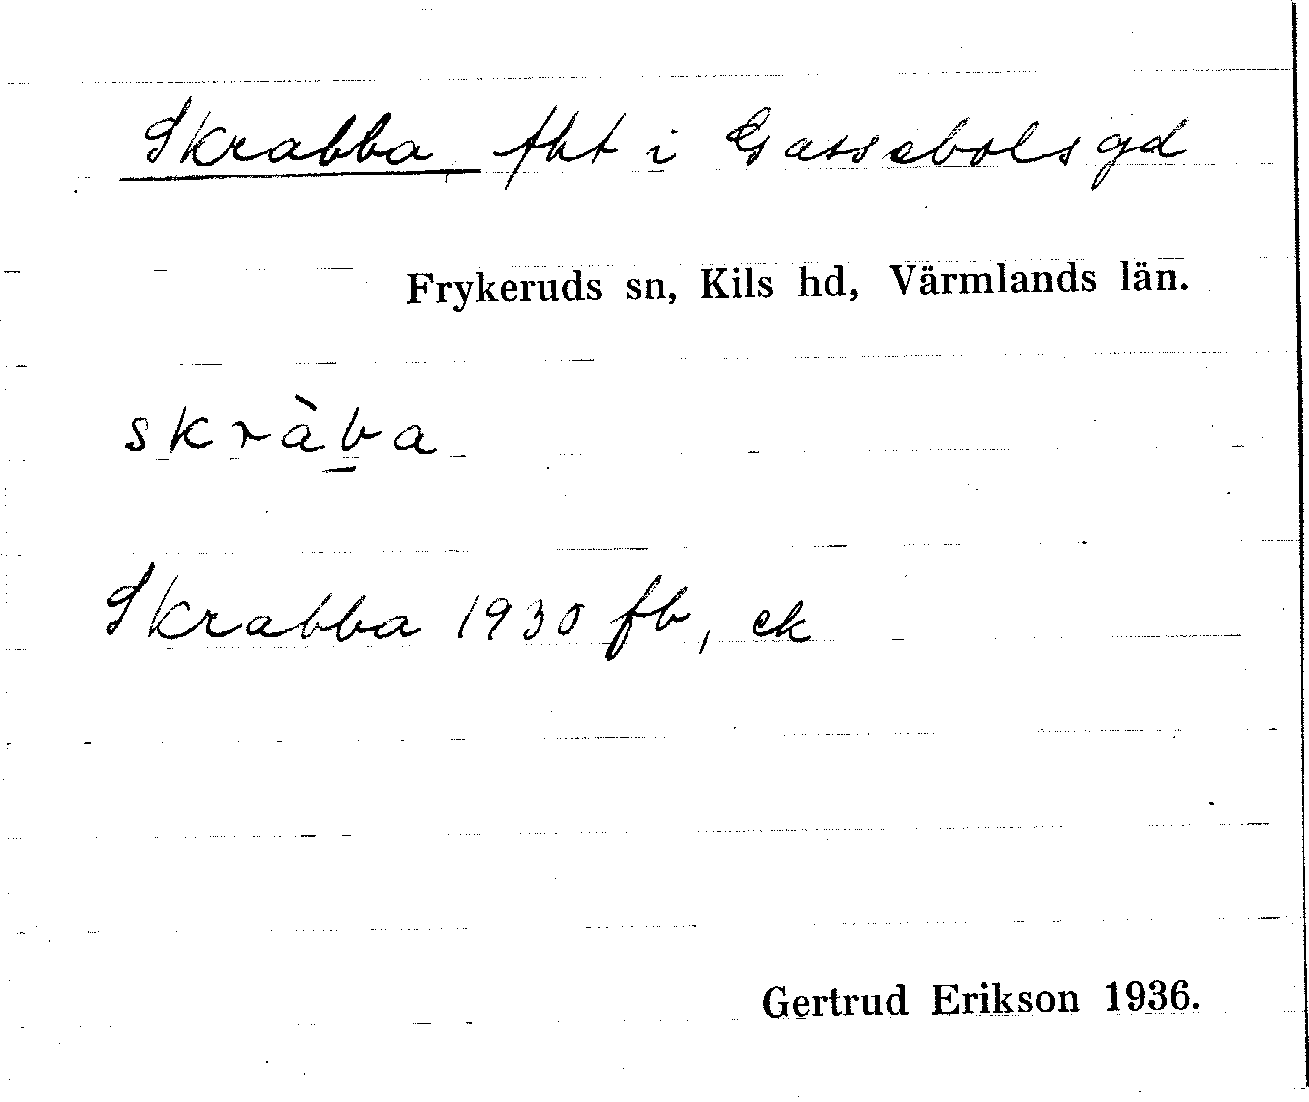 Skrabba fht i Gassebolsgd
Frykeruds sn, Kils hd, Värmlands län.
skràb̲a
Skrabba 1930 fb, ek
Gertrud Erikson 1936.